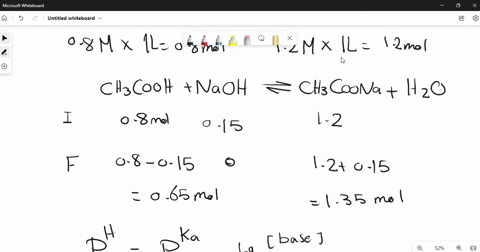 Microsoft Whiteboard
Untitled whiteboard
0.8M × 1L = 0.8mol 1.2M × 1L = 1.2mol
CH3COOH + NaOH ⇌ CH3COONa + H2O
I 0.8mol 0.15 1.2
F 0.8-0.15 0 1.2+0.15
= 0.65mol = 1.35 mol
[base]
PH = PKa
52%